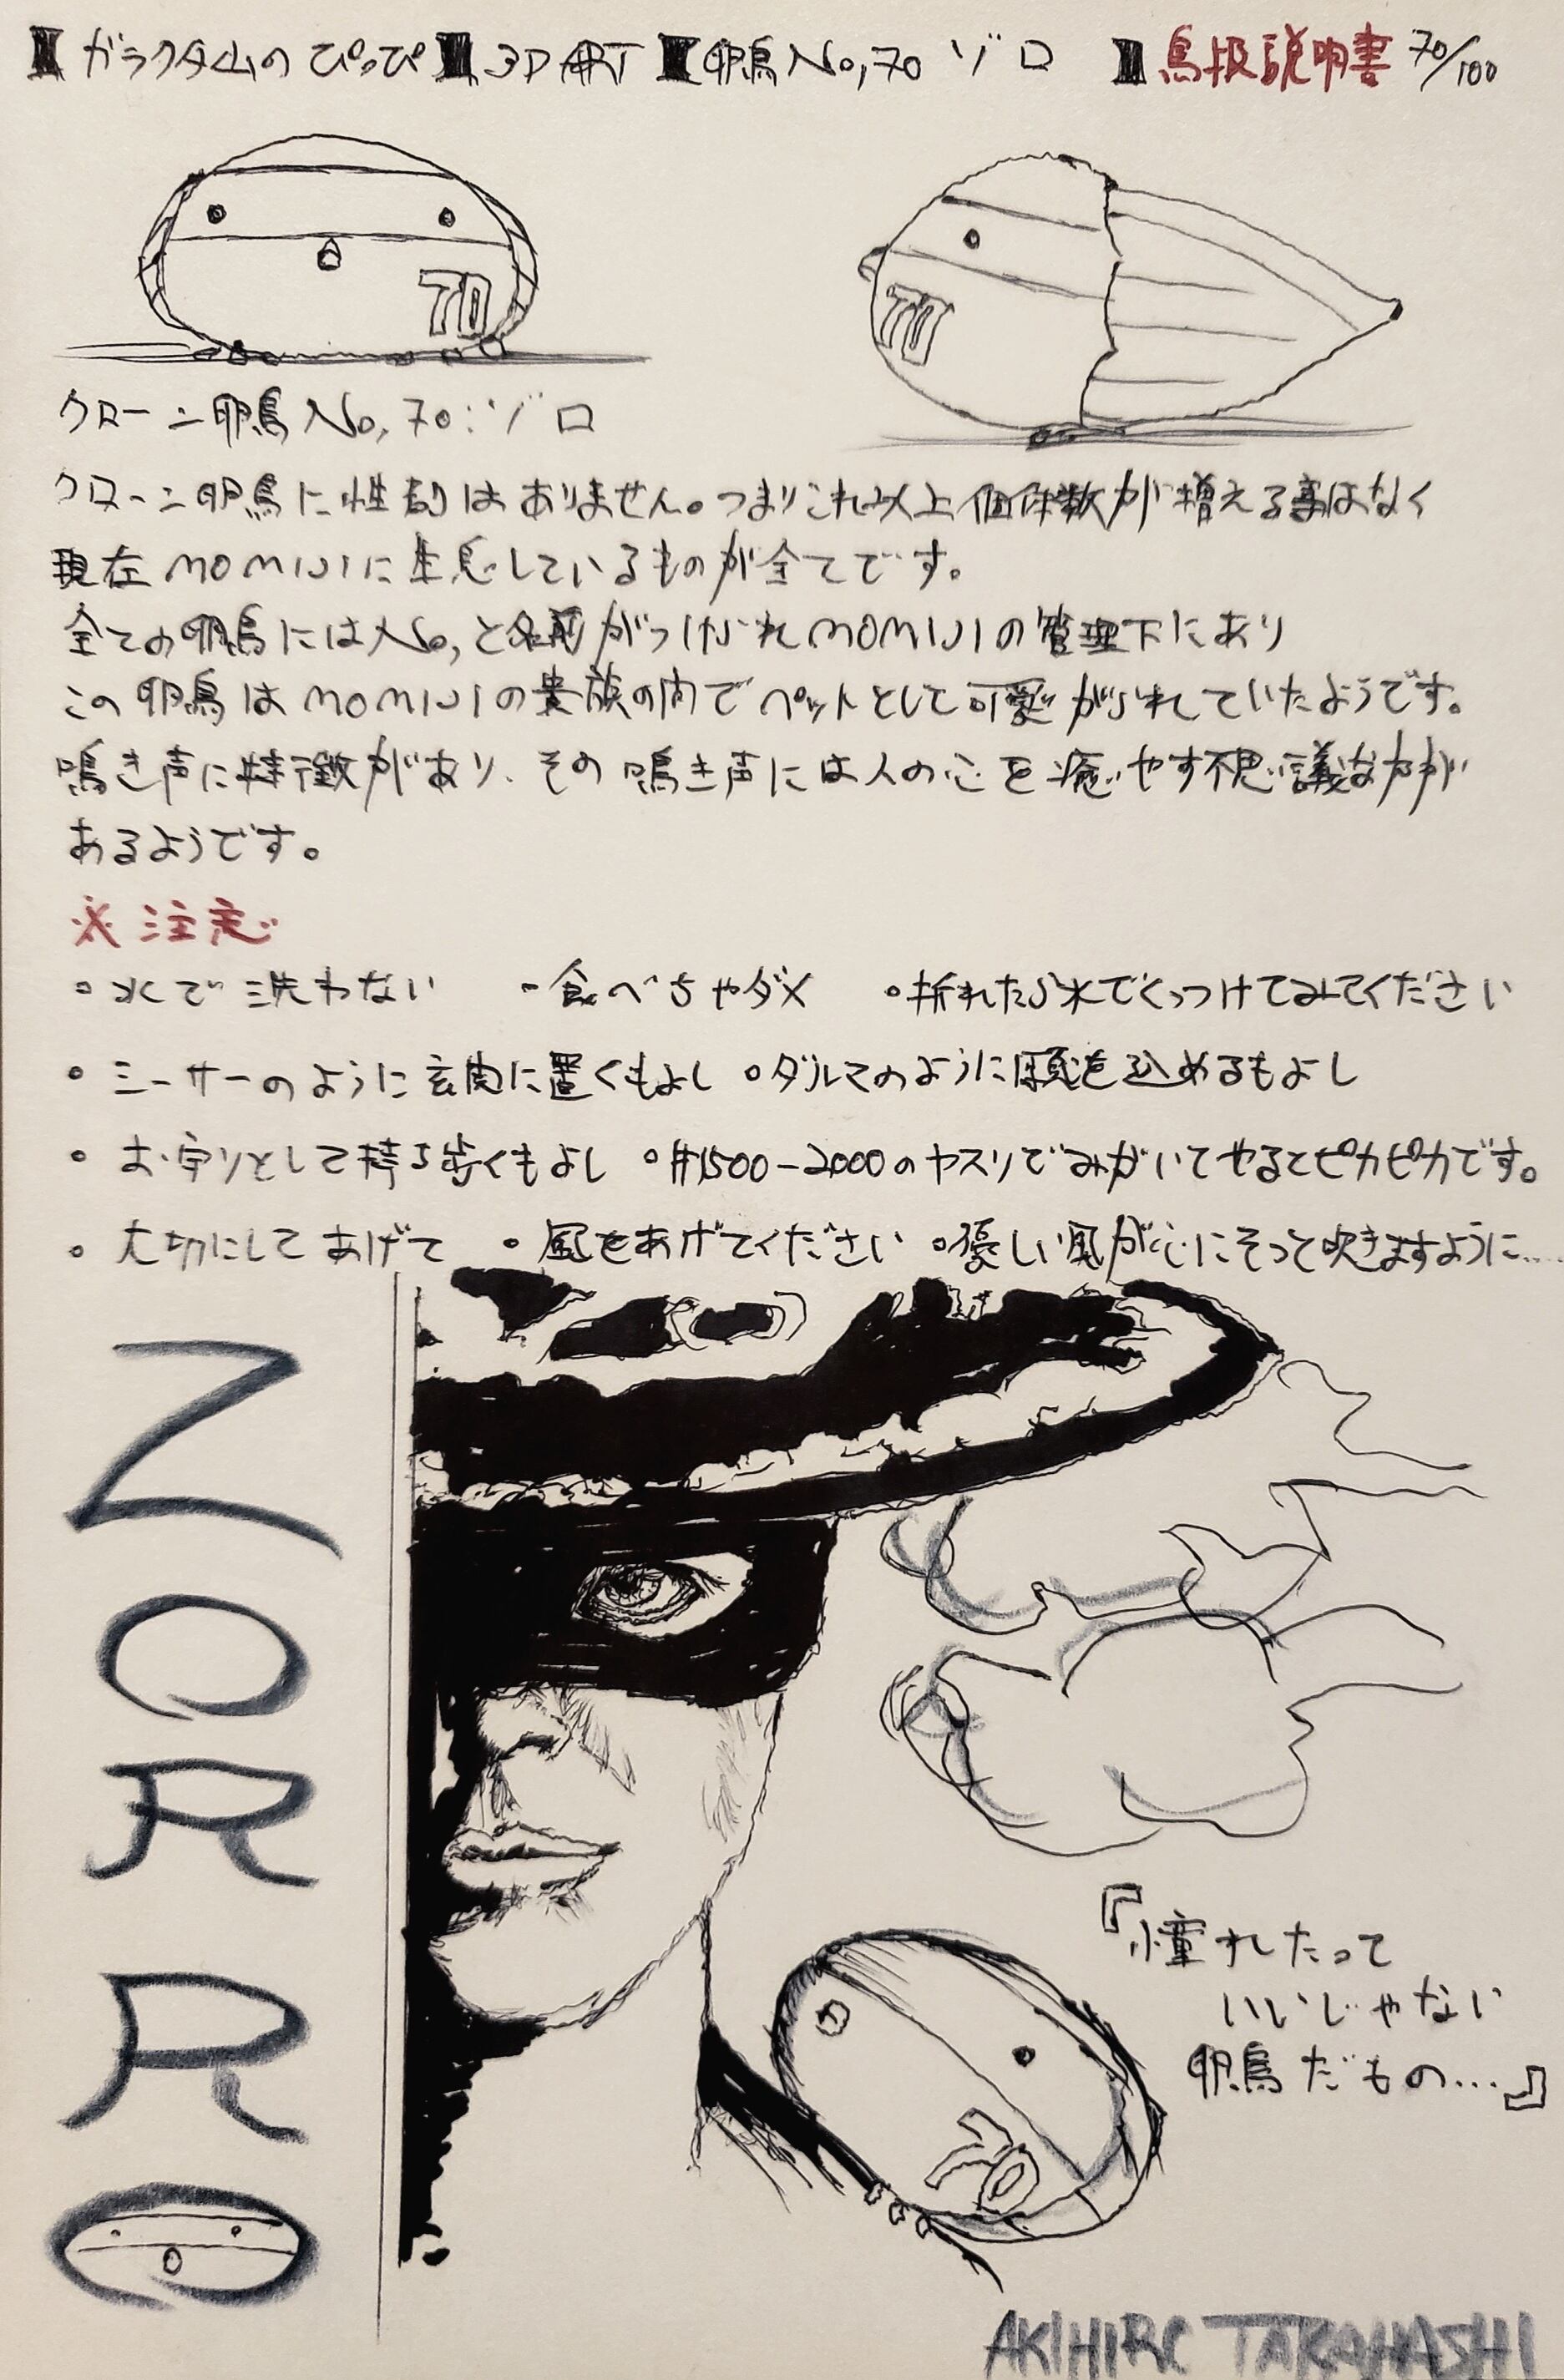 ガラクタ山のぴっぴ 3D ART 卵鳥No,70 ゾロ 鳥扱説明書 70/100
70
70
クローン卵鳥No,70:ゾロ
クローン卵鳥に性別はありません。つまりこれ以上個体数が増える事はなく
現在MOMIJIに生息しているものが全てです。
全ての卵鳥にはNo,と名前がつけられMOMIJIの管理下にあり
この卵鳥はMOMIJIの貴族の間でペットとして可愛がられていたようです。
鳴き声に特徴があり、その鳴き声には人の心を癒やす不思議な力が
あるようです。
※注意
・水で洗わない ・食べちゃダメ ・折れたら水でくっつけてみてください
・シーサーのように玄関に置くもよし ・ダルマのように願を込めるもよし
・お守りとして持ち歩くもよし ・#1500-2000のヤスリでみがいてやるとピカピカです。
・大切にしてあげて ・風をあげてください ・優しい風が心にそって吹きますように....
ZORRO
『憧れたって
いいじゃない
卵鳥だもの...』
70
AKIHIRO TAKAHASHI